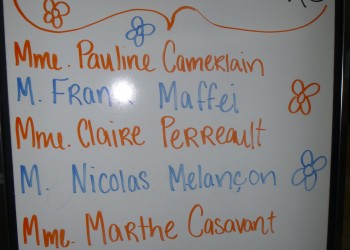 Mme. Pauline Camerlain
M. Frank Maffei
Mme. Claire Perreault
M. Nicolas Melançon
Mme. Marthe Casavant